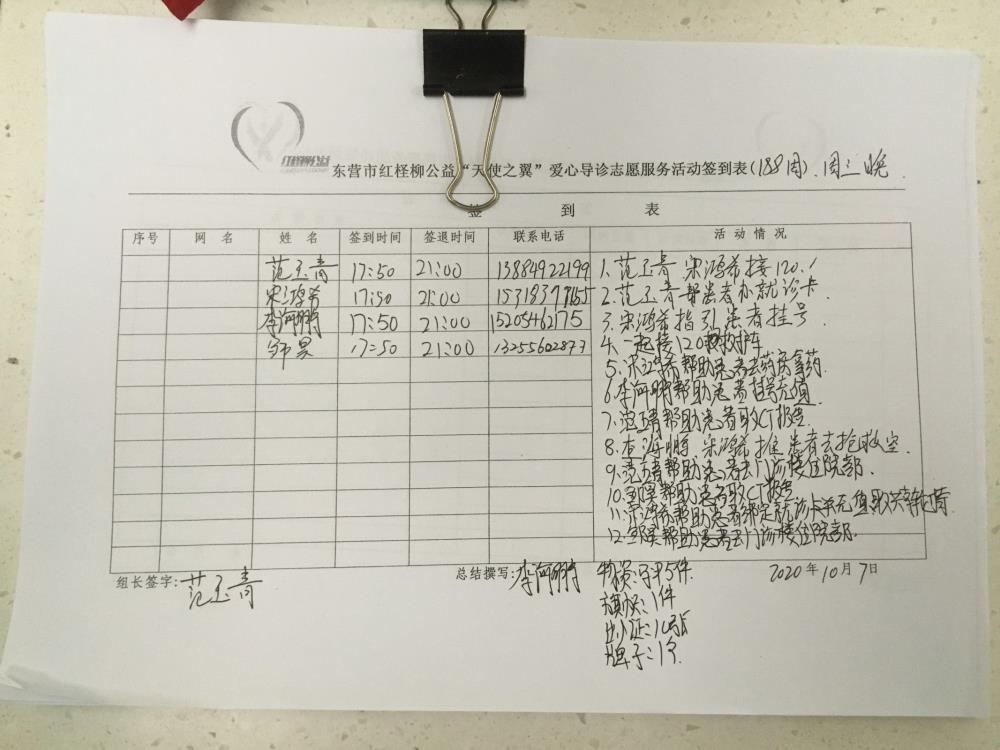 红柽柳公益
东营市红柽柳公益“天使之翼”爱心导诊志愿服务活动签到表(188周).周三晚
签 到 表
序号 网 名 姓 名 签到时间 签退时间 联系电话 活动情况
范玉青 17:50 21:00 13884922199
宋鸿希 17:50 21:00
李海鹏 17:50 21:00 15205462175
邹昊 17:50 21:00 13255602877
1.范玉青 宋鸿希接120.
2.范玉青帮患者办就诊卡
3.宋鸿希指引患者挂号.
4.一起接120救护车
5.宋鸿希帮助患者去药房拿药.
6.李海鹏帮助患者挂号充值
7.范玉青帮助患者取CT报告.
8.李海鹏 宋鸿希推患者去抢救室.
9.范玉青帮助患者去门诊楼住院部.
10.邹昊帮助患者取CT报告
11.宋鸿希帮助患者绑定就诊卡
12.邹昊帮助患者去门诊楼住院部.
组长签字:范玉青
总结撰写:李海鹏
2020年10月7日
物资:马甲5件.
旗帜:1件
出入证:10张
牌子:1个.